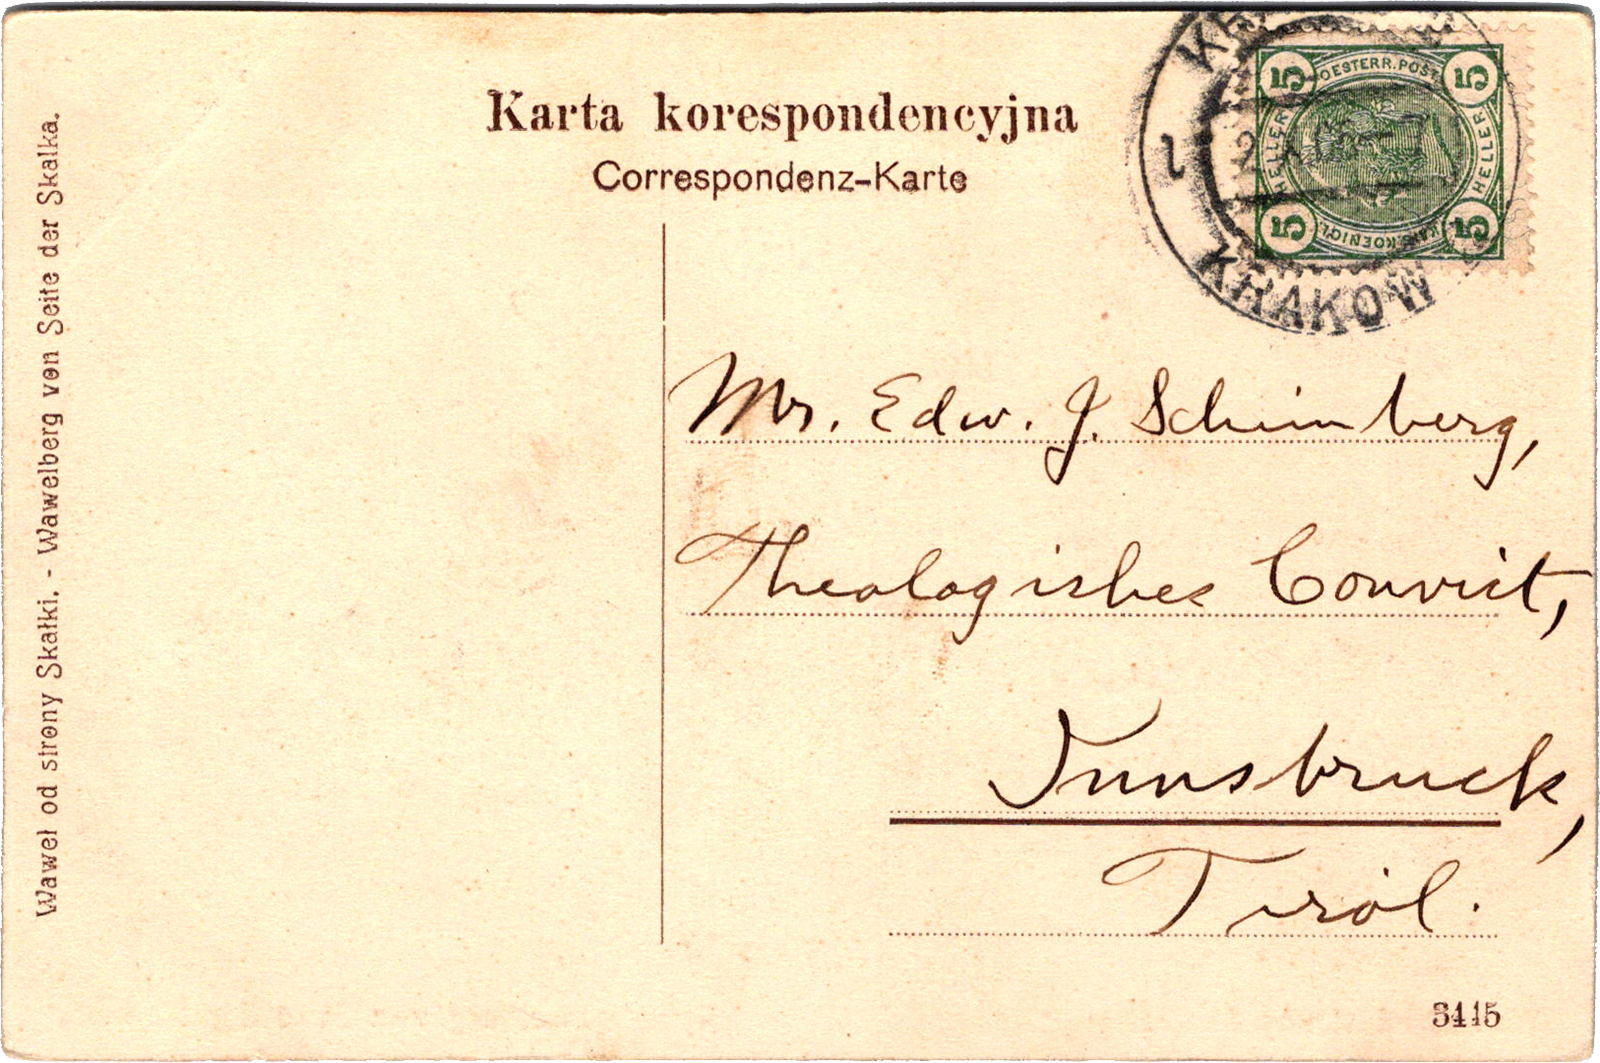 Karta korespondencyjna
Correspondenz-Karte
Wawel od strony Skałki. - Wawelberg von Seite der Skalka.
5 5
OESTERR. POST
HELLER HELLER
KAIS. KOENIGL.
5 5
1
KRAKOW
Mr. Edw. J. Schimberg,
Theologisches Convict,
Innsbruck,
Tirol.
3415